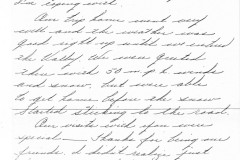 I'm coping well.
Our trip home went very
well and the weather was
good right up until we entered
the Valley. We were greeted
there with 50 m.p.h. winds
and snow, but were able
to get home before the snow
started sticking to the road.
Our visits with you were
special — thanks for being our
friends. I didn't realize just